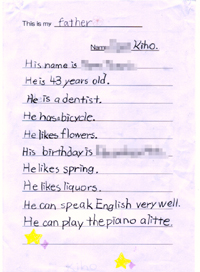 This is my father
Name Kiho.
His name is
He is 43 years old.
He is a dentist.
He has a bicycle.
He likes flowers.
His birthday is
He likes spring.
He likes liquors.
He can speak English very well.
He can play the piano alitte.